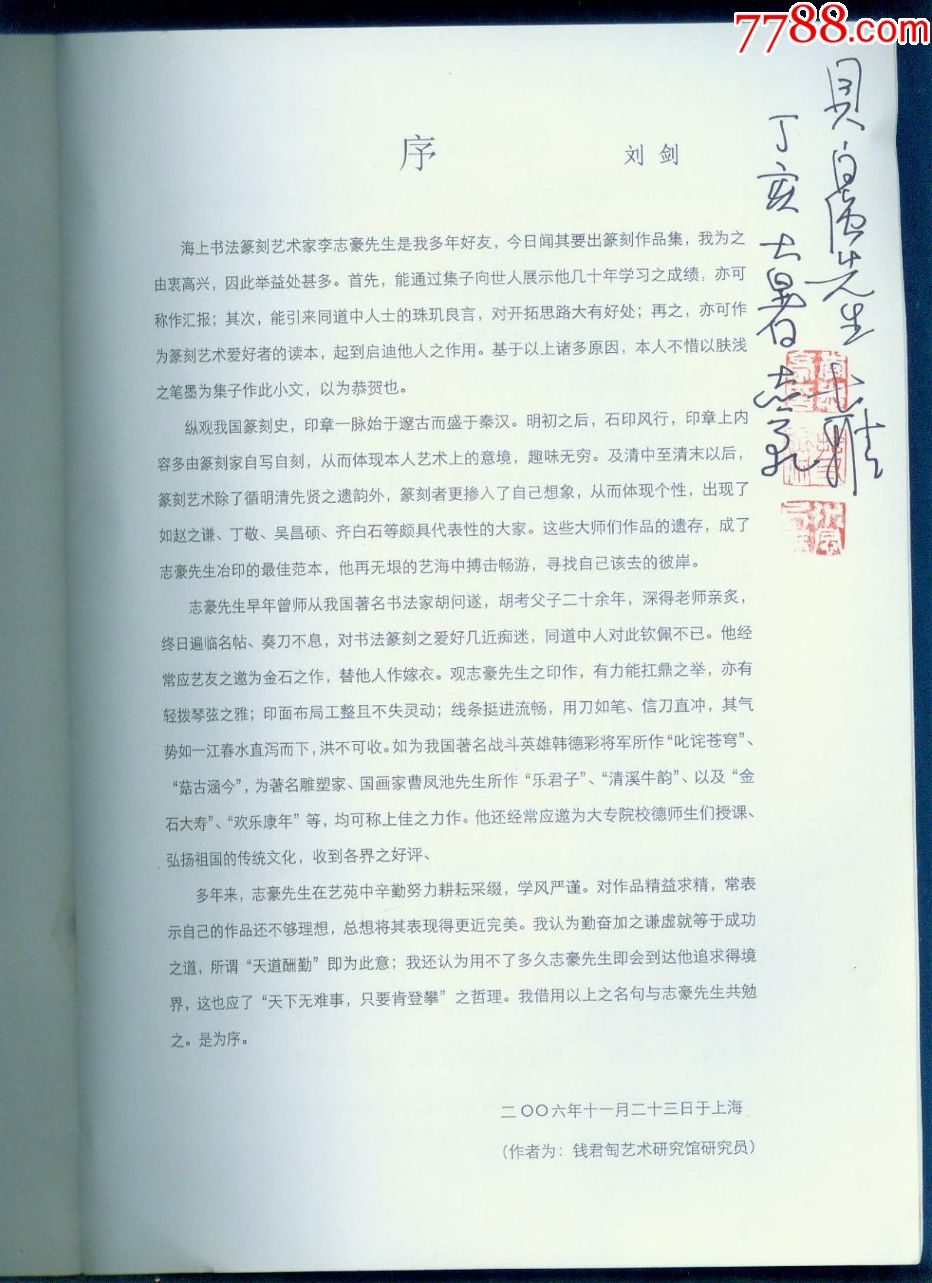 7788.com
序
刘 剑
海上书法篆刻艺术家李志豪先生是我多年好友，今日闻其要出篆刻作品集，我为之
由衷高兴，因此举益处甚多。首先，能通过集子向世人展示他几十年学习之成绩，亦可
称作汇报；其次，能引来同道中人士的珠玑良言，对开拓思路大有好处；再之，亦可作
为篆刻艺术爱好者的读本，起到启迪他人之作用。基于以上诸多原因，本人不惜以肤浅
之笔墨为集子作此小文，以为恭贺也。
纵观我国篆刻史，印章一脉始于邃古而盛于秦汉。明初之后，石印风行，印章上内
容多由篆刻家自写自刻，从而体现本人艺术上的意境，趣味无穷。及清中至清末以后，
篆刻艺术除了循明清先贤之遗韵外，篆刻者更掺入了自己想象，从而体现个性，出现了
如赵之谦、丁敬、吴昌硕、齐白石等颇具代表性的大家。这些大师们作品的遗存，成了
志豪先生冶印的最佳范本，他再无垠的艺海中搏击畅游，寻找自己该去的彼岸。
志豪先生早年曾师从我国著名书法家胡问遂，胡考父子二十余年，深得老师亲炙，
终日遍临名帖、奏刀不息，对书法篆刻之爱好几近痴迷，同道中人对此钦佩不已。他经
常应艺友之邀为金石之作，替他人作嫁衣。观志豪先生之印作，有力能扛鼎之举，亦有
轻拨琴弦之雅；印面布局工整且不失灵动；线条挺进流畅，用刀如笔、信刀直冲，其气
势如一江春水直泻而下，洪不可收。如为我国著名战斗英雄韩德彩将军所作“叱诧苍穹”、
“茹古涵今”，为著名雕塑家、国画家曹凤池先生所作“乐君子”、“清溪牛韵”、以及“金
石大寿”、“欢乐康年”等，均可称上佳之力作。他还经常应邀为大专院校德师生们授课、
弘扬祖国的传统文化，收到各界之好评、
多年来，志豪先生在艺苑中辛勤努力耕耘采缀，学风严谨。对作品精益求精，常表
示自己的作品还不够理想，总想将其表现得更近完美。我认为勤奋加之谦虚就等于成功
之道，所谓“天道酬勤”即为此意；我还认为用不了多久志豪先生即会到达他追求得境
界，这也应了“天下无难事，只要肯登攀”之哲理。我借用以上之名句与志豪先生共勉
之。是为序。
二〇〇六年十一月二十三日于上海
（作者为：钱君匋艺术研究馆研究员）
先生
丁亥 大暑 志豪